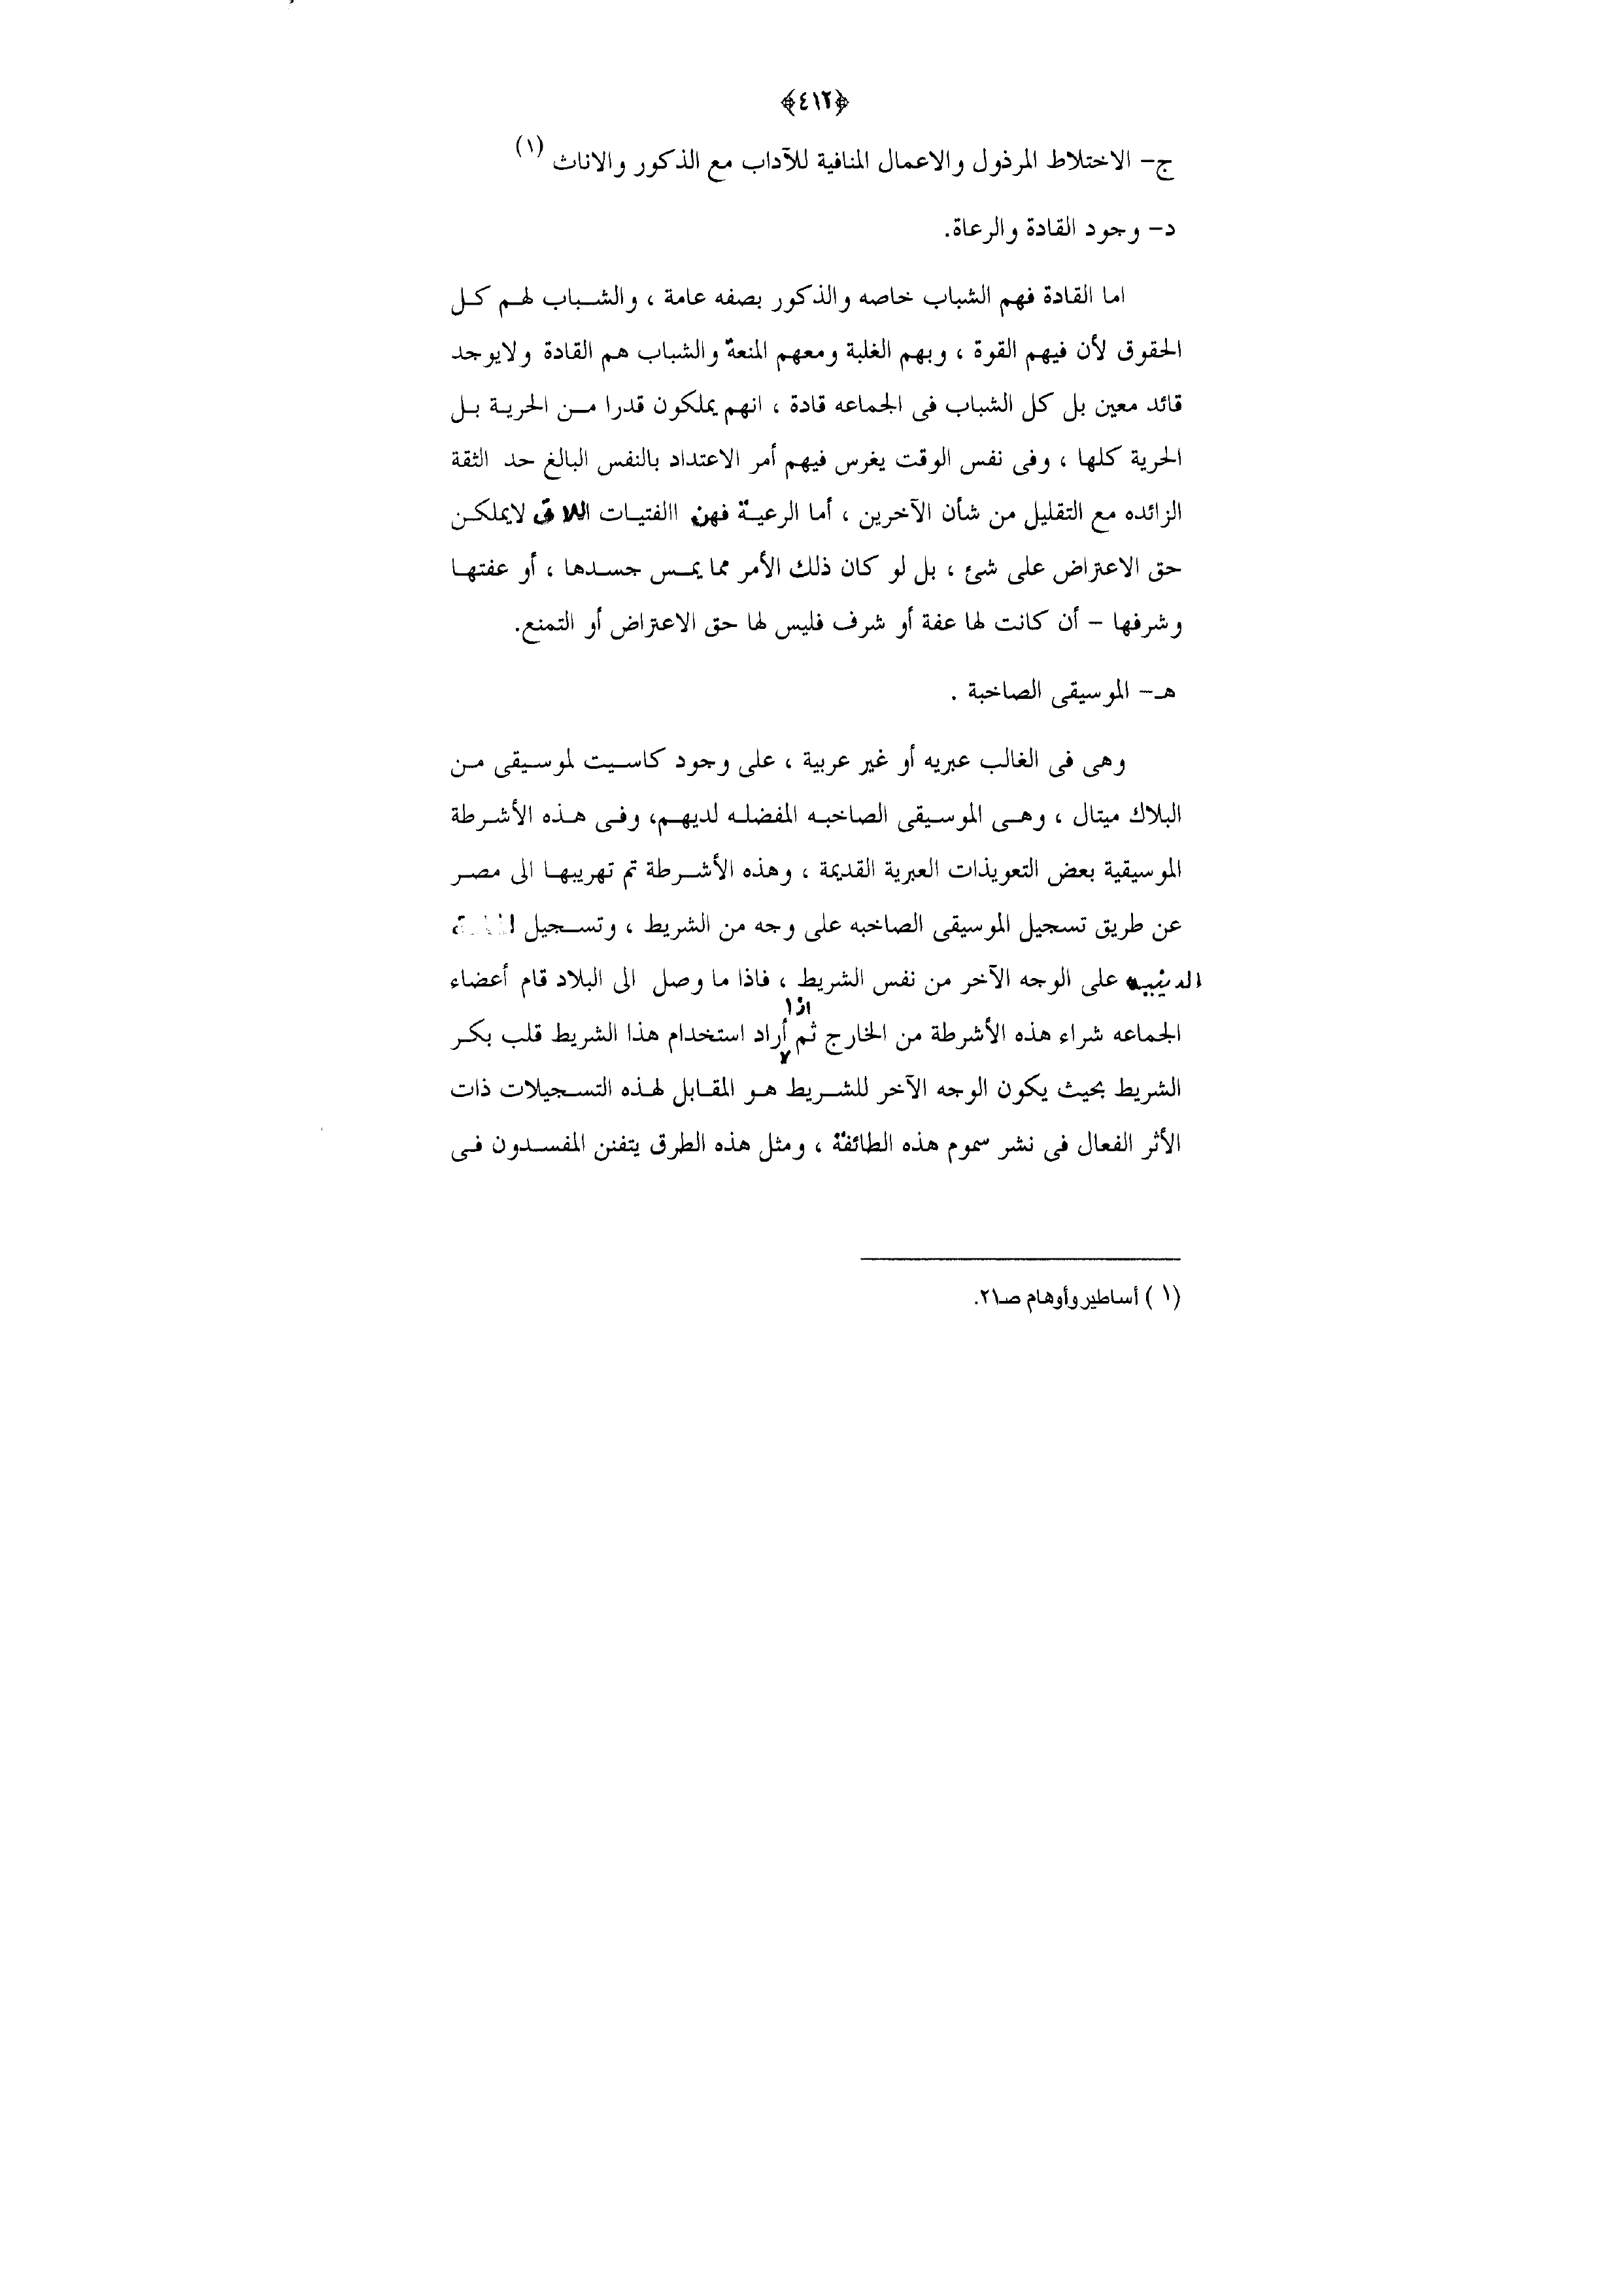 ﴿٤١٢﴾
ج- الاختلاط المرذول والاعمال المنافية للآداب مع الذكور والاناث (١)
د- وجود القادة والرعاة.
اما القادة فهم الشباب خاصه والذكور بصفه عامة ، والشباب لهم كل
الحقوق لأن فيهم القوة ، وبهم الغلبة ومعهم المنعة والشباب هم القادة ولايوجد
قائد معين بل كل الشباب فى الجماعه قادة ، انهم يملكون قدرا من الحرية بل
الحرية كلها ، وفى نفس الوقت يغرس فيهم أمر الاعتداد بالنفس البالغ حد الثقة
الزائده مع التقليل من شأن الآخرين ، أما الرعية فهن االفتيات اللاتى لايملكن
حق الاعتراض على شئ ، بل لو كان ذلك الأمر مما يمس جسدها ، أو عفتها
وشرفها - أن كانت لها عفة أو شرف فليس لها حق الاعتراض أو التمنع.
هـ- الموسيقى الصاخبة .
وهى فى الغالب عبريه أو غير عربية ، على وجود كاسيت لموسيقى من
البلاك ميتال ، وهى الموسيقى الصاخبه المفضله لديهم، وفى هذه الأشرطة
الموسيقية بعض التعويذات العبرية القديمة ، وهذه الأشرطة تم تهريبها الى مصر
عن طريق تسجيل الموسيقى الصاخبه على وجه من الشريط ، وتسجيل
الدينيه على الوجه الآخر من نفس الشريط ، فاذا ما وصل الى البلاد قام أعضاء
اذا
الجماعه شراء هذه الأشرطة من الخارج ثم أراد استخدام هذا الشريط قلب بكر
الشريط بحيث يكون الوجه الآخر للشريط هو المقابل لهذه التسجيلات ذات
الأثر الفعال فى نشر سموم هذه الطائفة ، ومثل هذه الطرق يتفنن المفسدون فى
(١) أساطير وأوهام صـ٢١.